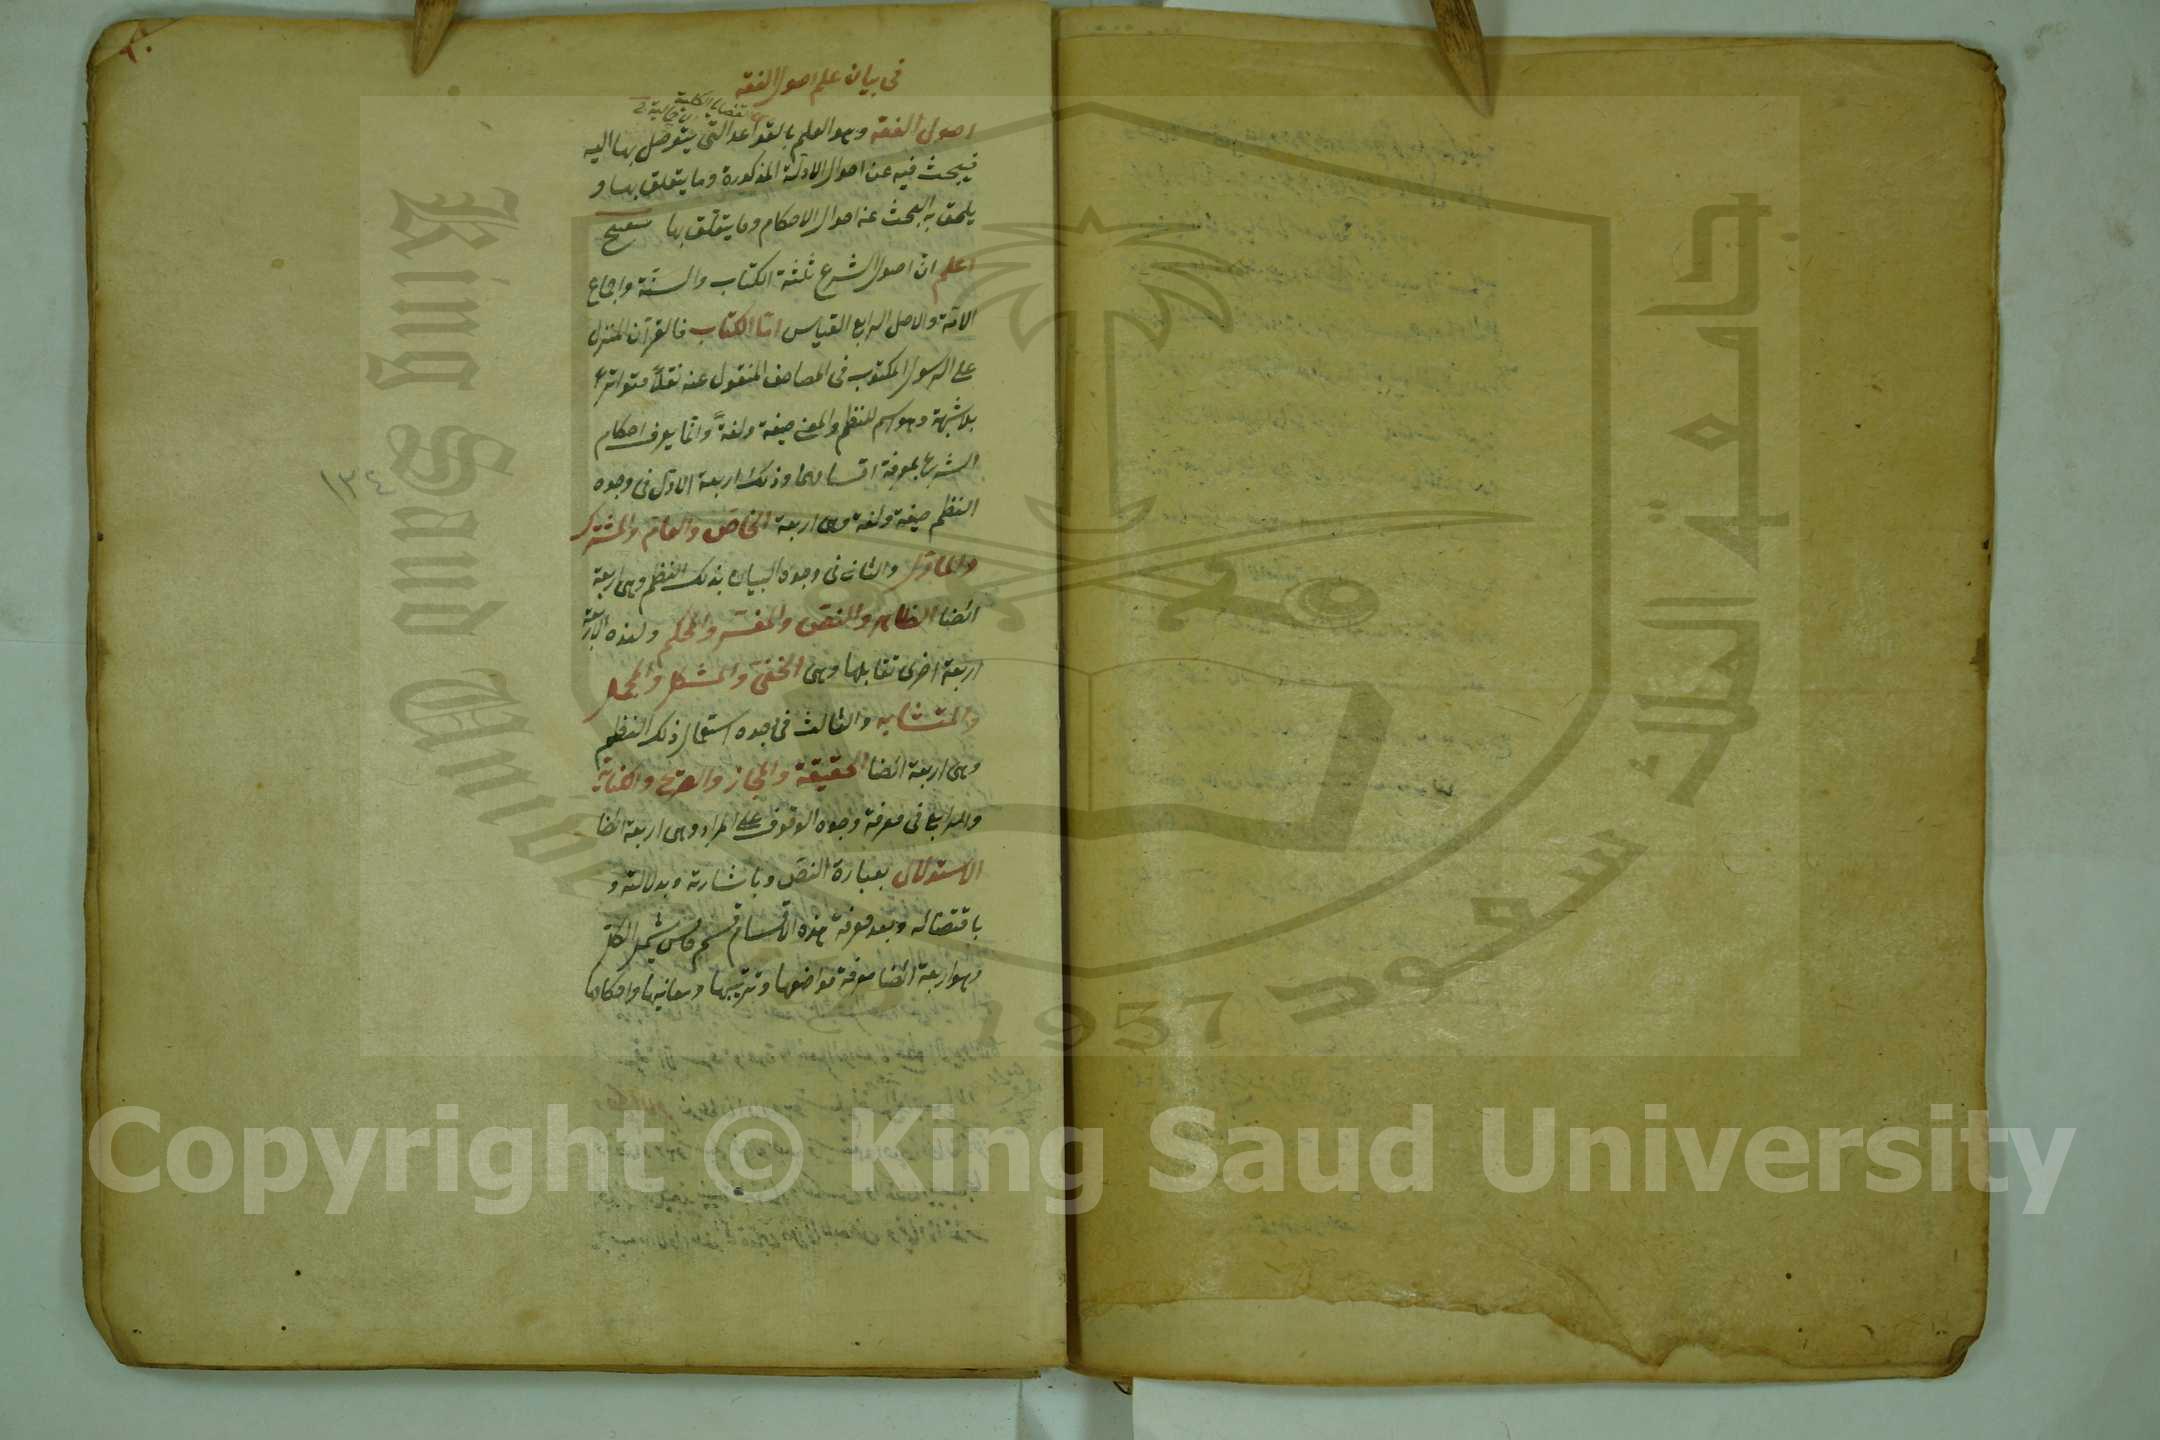 ٩٠
في بيان علم اصول الفقه
القضايا الكلية
اصول الفقه وهو العلم بالقواعد التي يتوصل بها اليه
فيبحث فيه عن احوال الادلة المذكورة وما يتعلق بها و
يلحق به البحث عن احوال الاحكام وما يتعلق بها
اعلم ان اصول الشرع ثلثة الكتاب والسنة واجماع
الامة والاصل الرابع القياس اما الكتاب فالقرآن المنزل
على الرسول المكتوب في المصاحف المنقول عنه نقلاً متواترا
بلا شبهة وهو اسم للنظم والمعنى صيغة ولغةً وانما يعرف احكام
الشرع بمعرفة اقسامهما وذلك اربعة الاول في وجوه
النظم صيغة ولغة وهى اربعة الخاص والعام والمشترك
والماوّل والثاني في وجوه البيان بذلك النظم وهى اربعة
ائضا الظاهر والنص والمفسر والمحكم ولهذه الاربعة
اربعة اخرى تقابلها وهى الخفى والمشكل والمجمل
والمتشابه والثالث في وجوه استعمال ذلك النظم
وهى اربعة ائضا الحقيقة والمجاز والصريح والكناية
والرابع في معرفة وجوه الوقوف على المراد وهى اربعة ائضا
الاستدلال بعبارة النص وباشارته وبدلالته و
باقتضائه وبعد معرفة هذه الاقسام قسم خامس يشمل الكل
وهو اربعة ائضا معرفة مواضعها وترتيبها ومعانيها واحكامها
١٣٤
King Saud University
جامعة الملك سعود
1957
Copyright © King Saud University